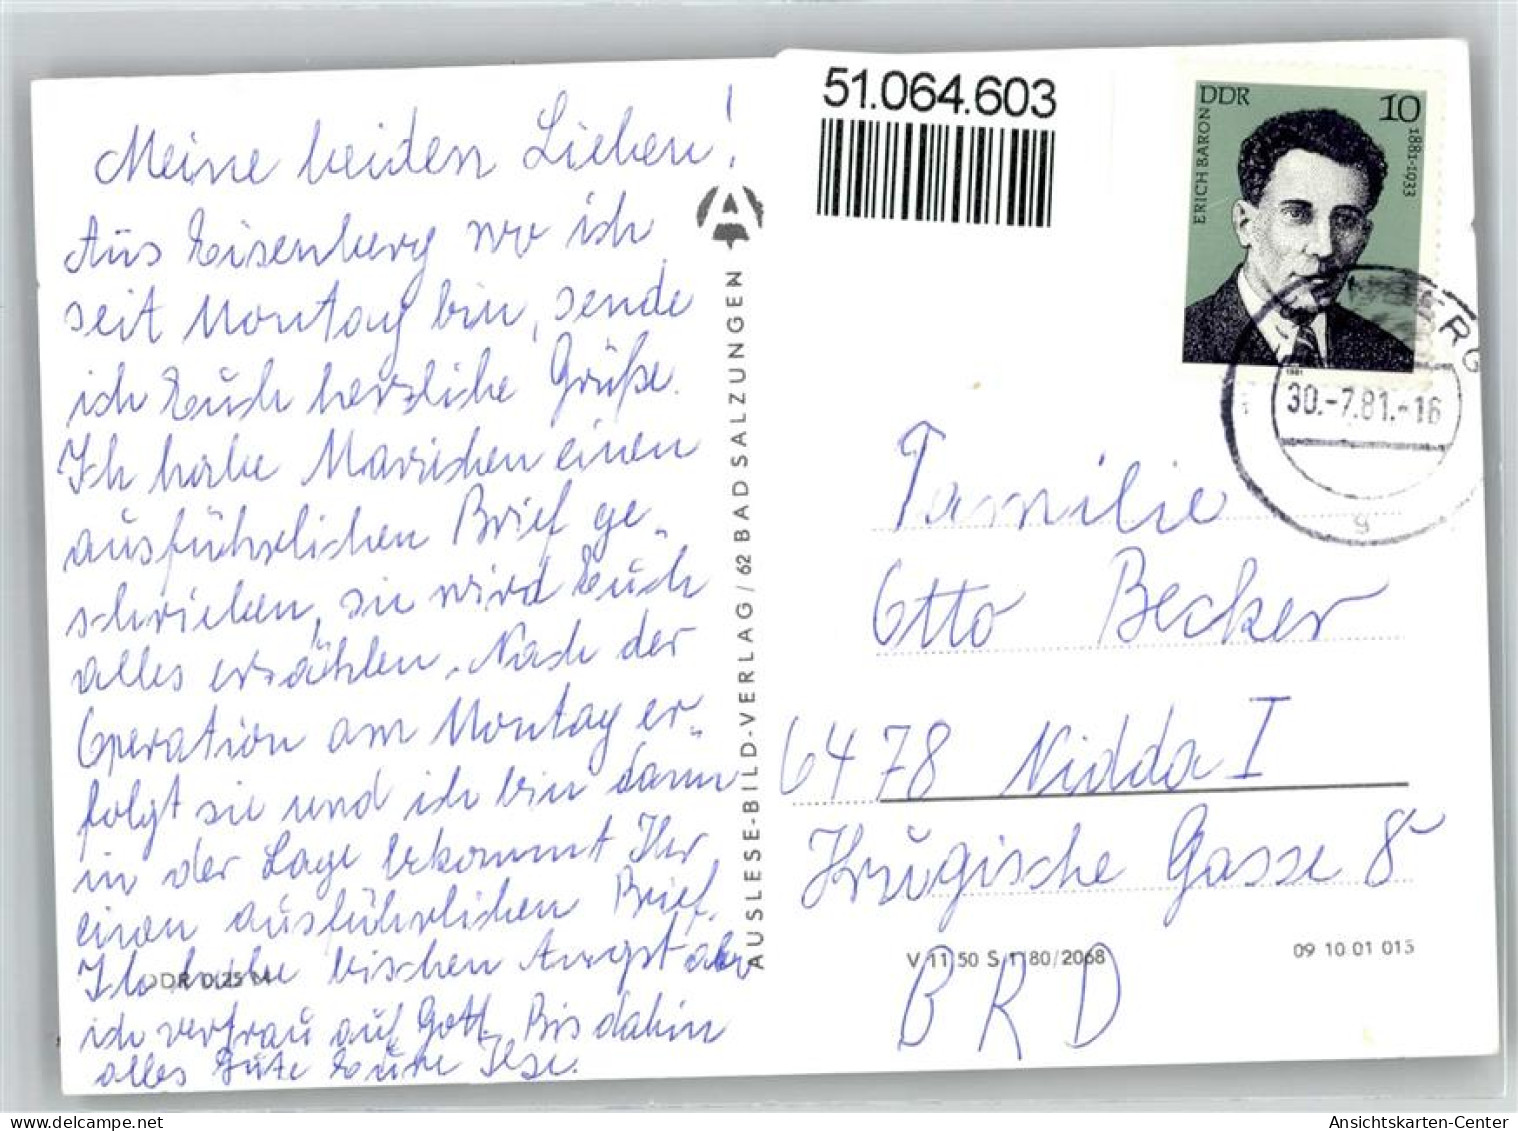 Meine beiden Lieben!
Aus Eisenberg wo ich
seit Montag bin, sende
ich Euch herzliche Grüße.
Ich habe Mariechen einen
ausführlichen Brief ge-
schrieben, sie wird Euch
alles erzählen. Nach der
Operation am Montag er-
folgt sie und ich bin dann
in der Lage bekommt Ihr
einen ausführlichen Brief.
Ich habe bischen Angst aber
ich vertrau auf Gott. Bis dahin
alles Gute Eure Ilse.
DDR 0,25 M
AUSLESE-BILD-VERLAG / 62 BAD SALZUNGEN
51.064.603
DDR
10
ERICH BARON
1881-1933
1981
ERG
30.-7.81.-16
g
Familie
Otto Becker
6478 Nidda I
Krügische Gasse 8
V 11 50 S 1180/2068
09 10 01 015
BRD
Ansichtskarten-Center